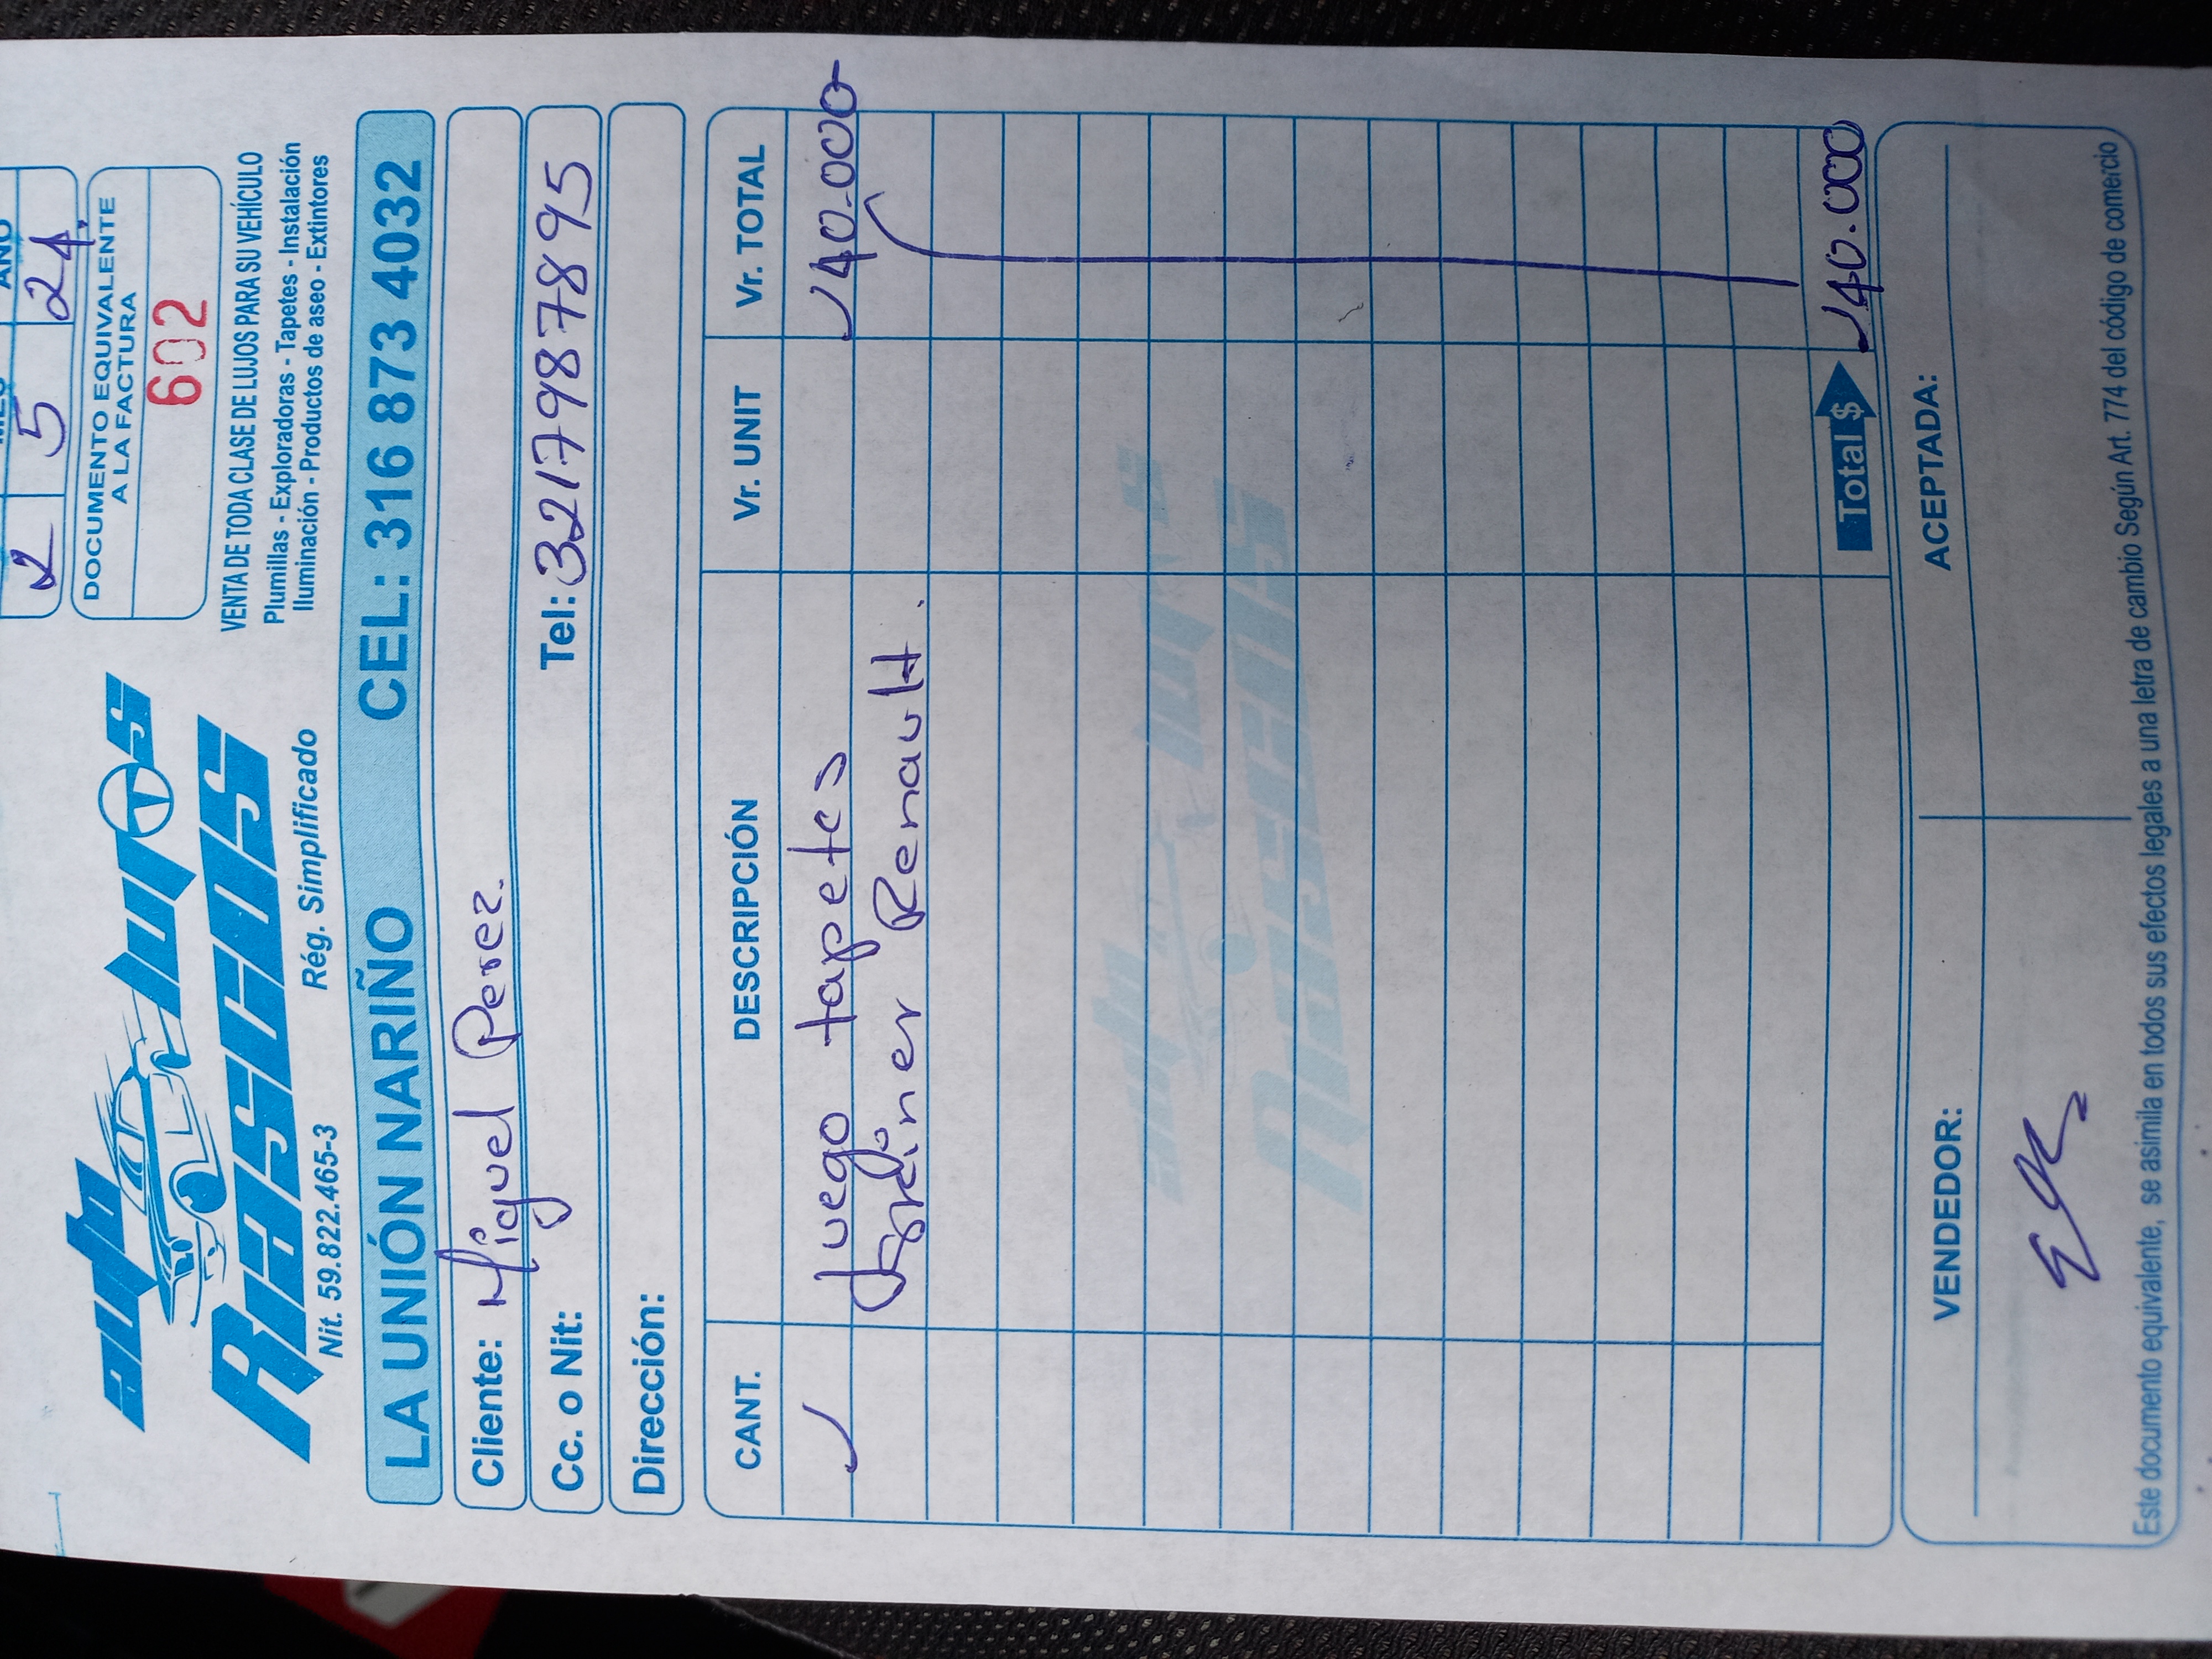 AÑO
2 5 24
DOCUMENTO EQUIVALENTE
A LA FACTURA
602
auto lujos
Riascos
Nit. 59.822.465-3 Rég. Simplificado
VENTA DE TODA CLASE DE LUJOS PARA SU VEHÍCULO
Plumillas - Exploradoras - Tapetes - Instalación
Iluminación - Productos de aseo - Extintores
LA UNIÓN NARIÑO CEL: 316 873 4032
Cliente: Miguel Perez.
Cc. o Nit: Tel: 3217987895
Dirección:
CANT. DESCRIPCIÓN Vr. UNIT Vr. TOTAL
Juego tapetes 140.000
Renault.
auto lujos
Riascos
Total $ 140.000
VENDEDOR: ACEPTADA:
Este documento equivalente, se asimila en todos sus efectos legales a una letra de cambio Según Art. 774 del código de comercio